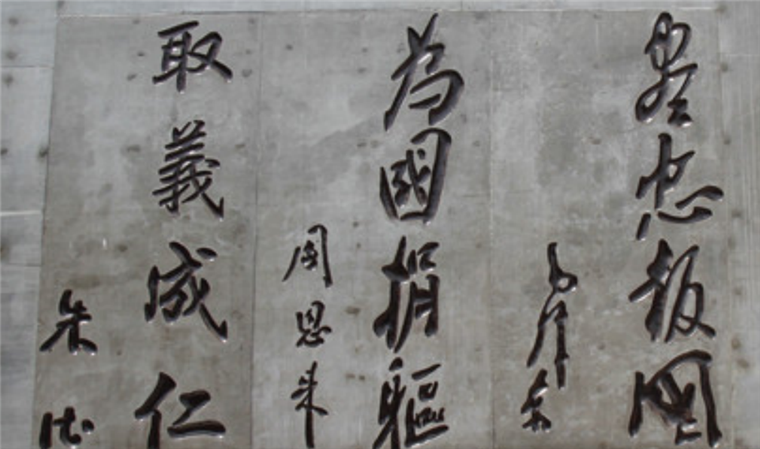 尽忠报国
毛泽东
為國捐軀
周恩来
取義成仁
朱德